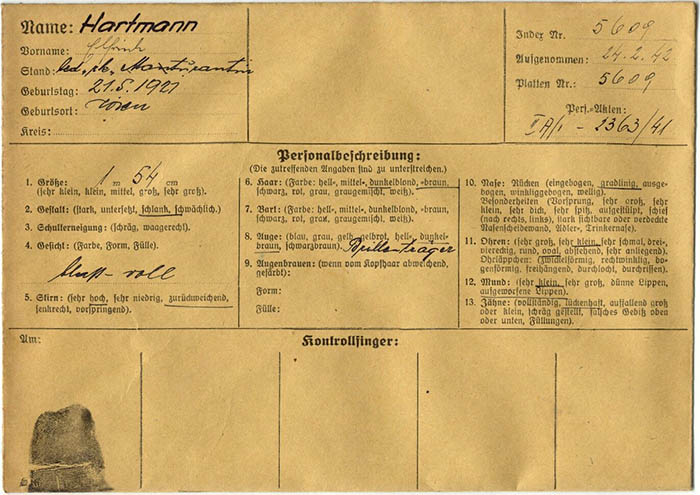 Name: Hartmann
Vorname: Elfriede
Stand: led. rk. Maturantin
Geburtstag: 21.5.1921
Geburtsort: Wien
Kreis:
Index Nr. 5609
Aufgenommen: 24.2.42
Platten Nr.: 5609
Pers.-Akten:
- 2363/41
Personalbeschreibung:
(Die zutreffenden Angaben sind zu unterstreichen.)
1. Größe: 1 m 54 cm
(sehr klein, klein, mittel, groß, sehr groß).
2. Gestalt: (stark, untersetzt, schlank, schwächlich).
3. Schulterneigung: (schräg, waagerecht).
4. Gesicht: (Farbe, Form, Fülle).
blass - voll
5. Stirn: (sehr hoch, sehr niedrig, zurückweichend,
senkrecht, vorspringend).
6. Haar: (Farbe: hell-, mittel-, dunkelblond, -braun,
schwarz, rot, grau, graugemischt, weiß).
7. Bart: (Farbe: hell-, mittel-, dunkelblond, -braun,
schwarz, rot, grau, graugemischt, weiß).
8. Auge: (blau, grau, gelb, gelbrot, hell-, dunkel-
braun, schwarzbraun). Brillenträger
9. Augenbrauen: (wenn vom Kopfhaar abweichend,
gefärbt):
Form:
Fülle:
10. Nase: Rücken (eingebogen, gradlinig, ausge-
bogen, winkliggebogen, wellig).
Besonderheiten (Vorsprung, sehr groß, sehr
klein, sehr dick, sehr spitz, aufgestülpt, schief
(nach rechts, links), stark sichtbare oder verdeckte
Nasenscheidewand, Adler-, Trinkernase).
11. Ohren: (sehr groß, sehr klein, sehr schmal, drei-,
viereckig, rund, oval, abstehend, sehr anliegend).
Ohrläppchen: (zwickelförmig, rechtwinklig, bo-
genförmig, freihängend, durchlocht, durchrissen).
12. Mund: (sehr klein, sehr groß, dünne Lippen,
aufgeworfene Lippen).
13. Zähne: (vollständig, lückenhaft, auffallend groß
oder klein, schräg gestellt, falsches Gebiß oben
oder unten, Füllungen).
Am:
Kontrollfinger: